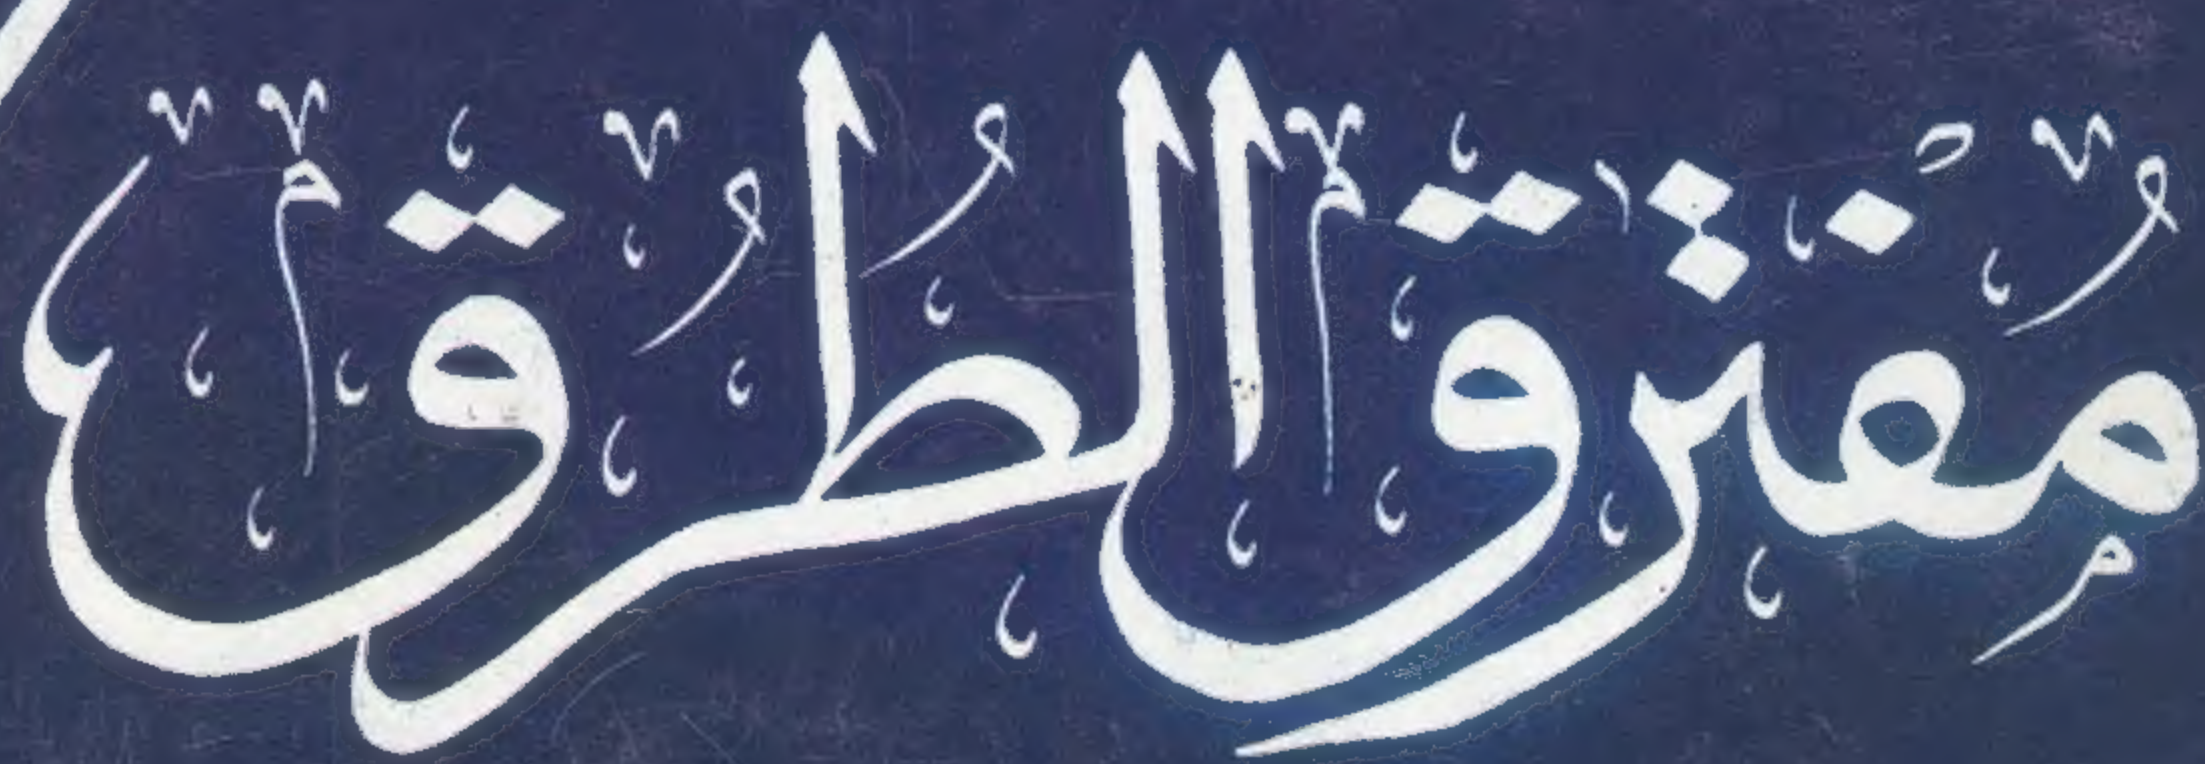 مُفترق الطُرُق